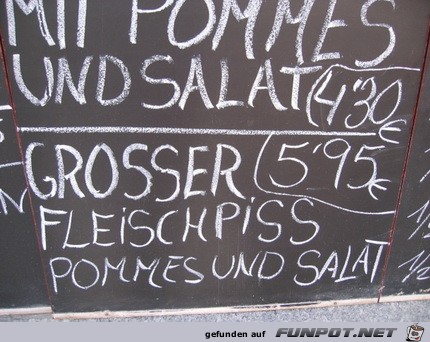 MIT POMMES
UND SALAT 4'30 €
GROSSER 5'95 €
FLEiSCHPiSS
POMMES UND SALAT
gefunden auf FUNPOT.NET